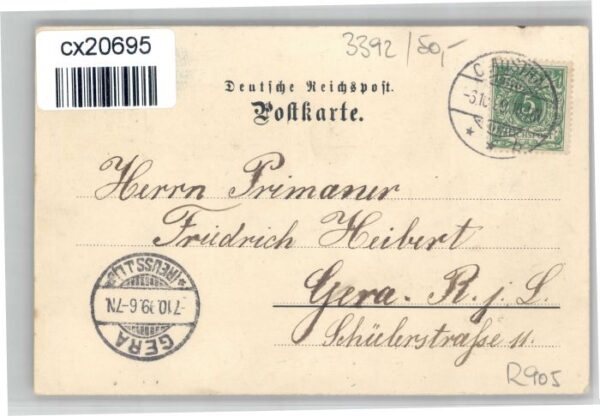 cx20695
3392/50,-
Deutsche Reichspost.
Postkarte.
Herrn Primaner
Friedrich Heibert
Gera. R. j. L.
Schülerstraße 11.
GERA
(REUSS J.L.)
R905